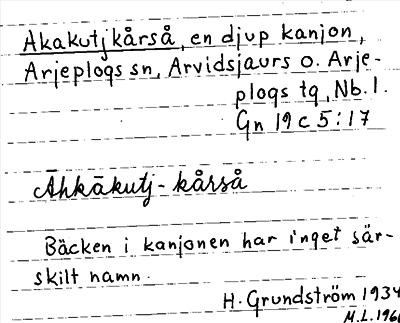 Akakutjkårså, en djup kanjon,
Arjeplogs sn, Arvidsjaurs o. Arje-
plogs tg, Nb. l.
Gn 19 c 5:17
Āhkākutj-kårså
Bäcken i kanjonen har inget sär-
skilt namn.
H. Grundström 1934
M.L. 196